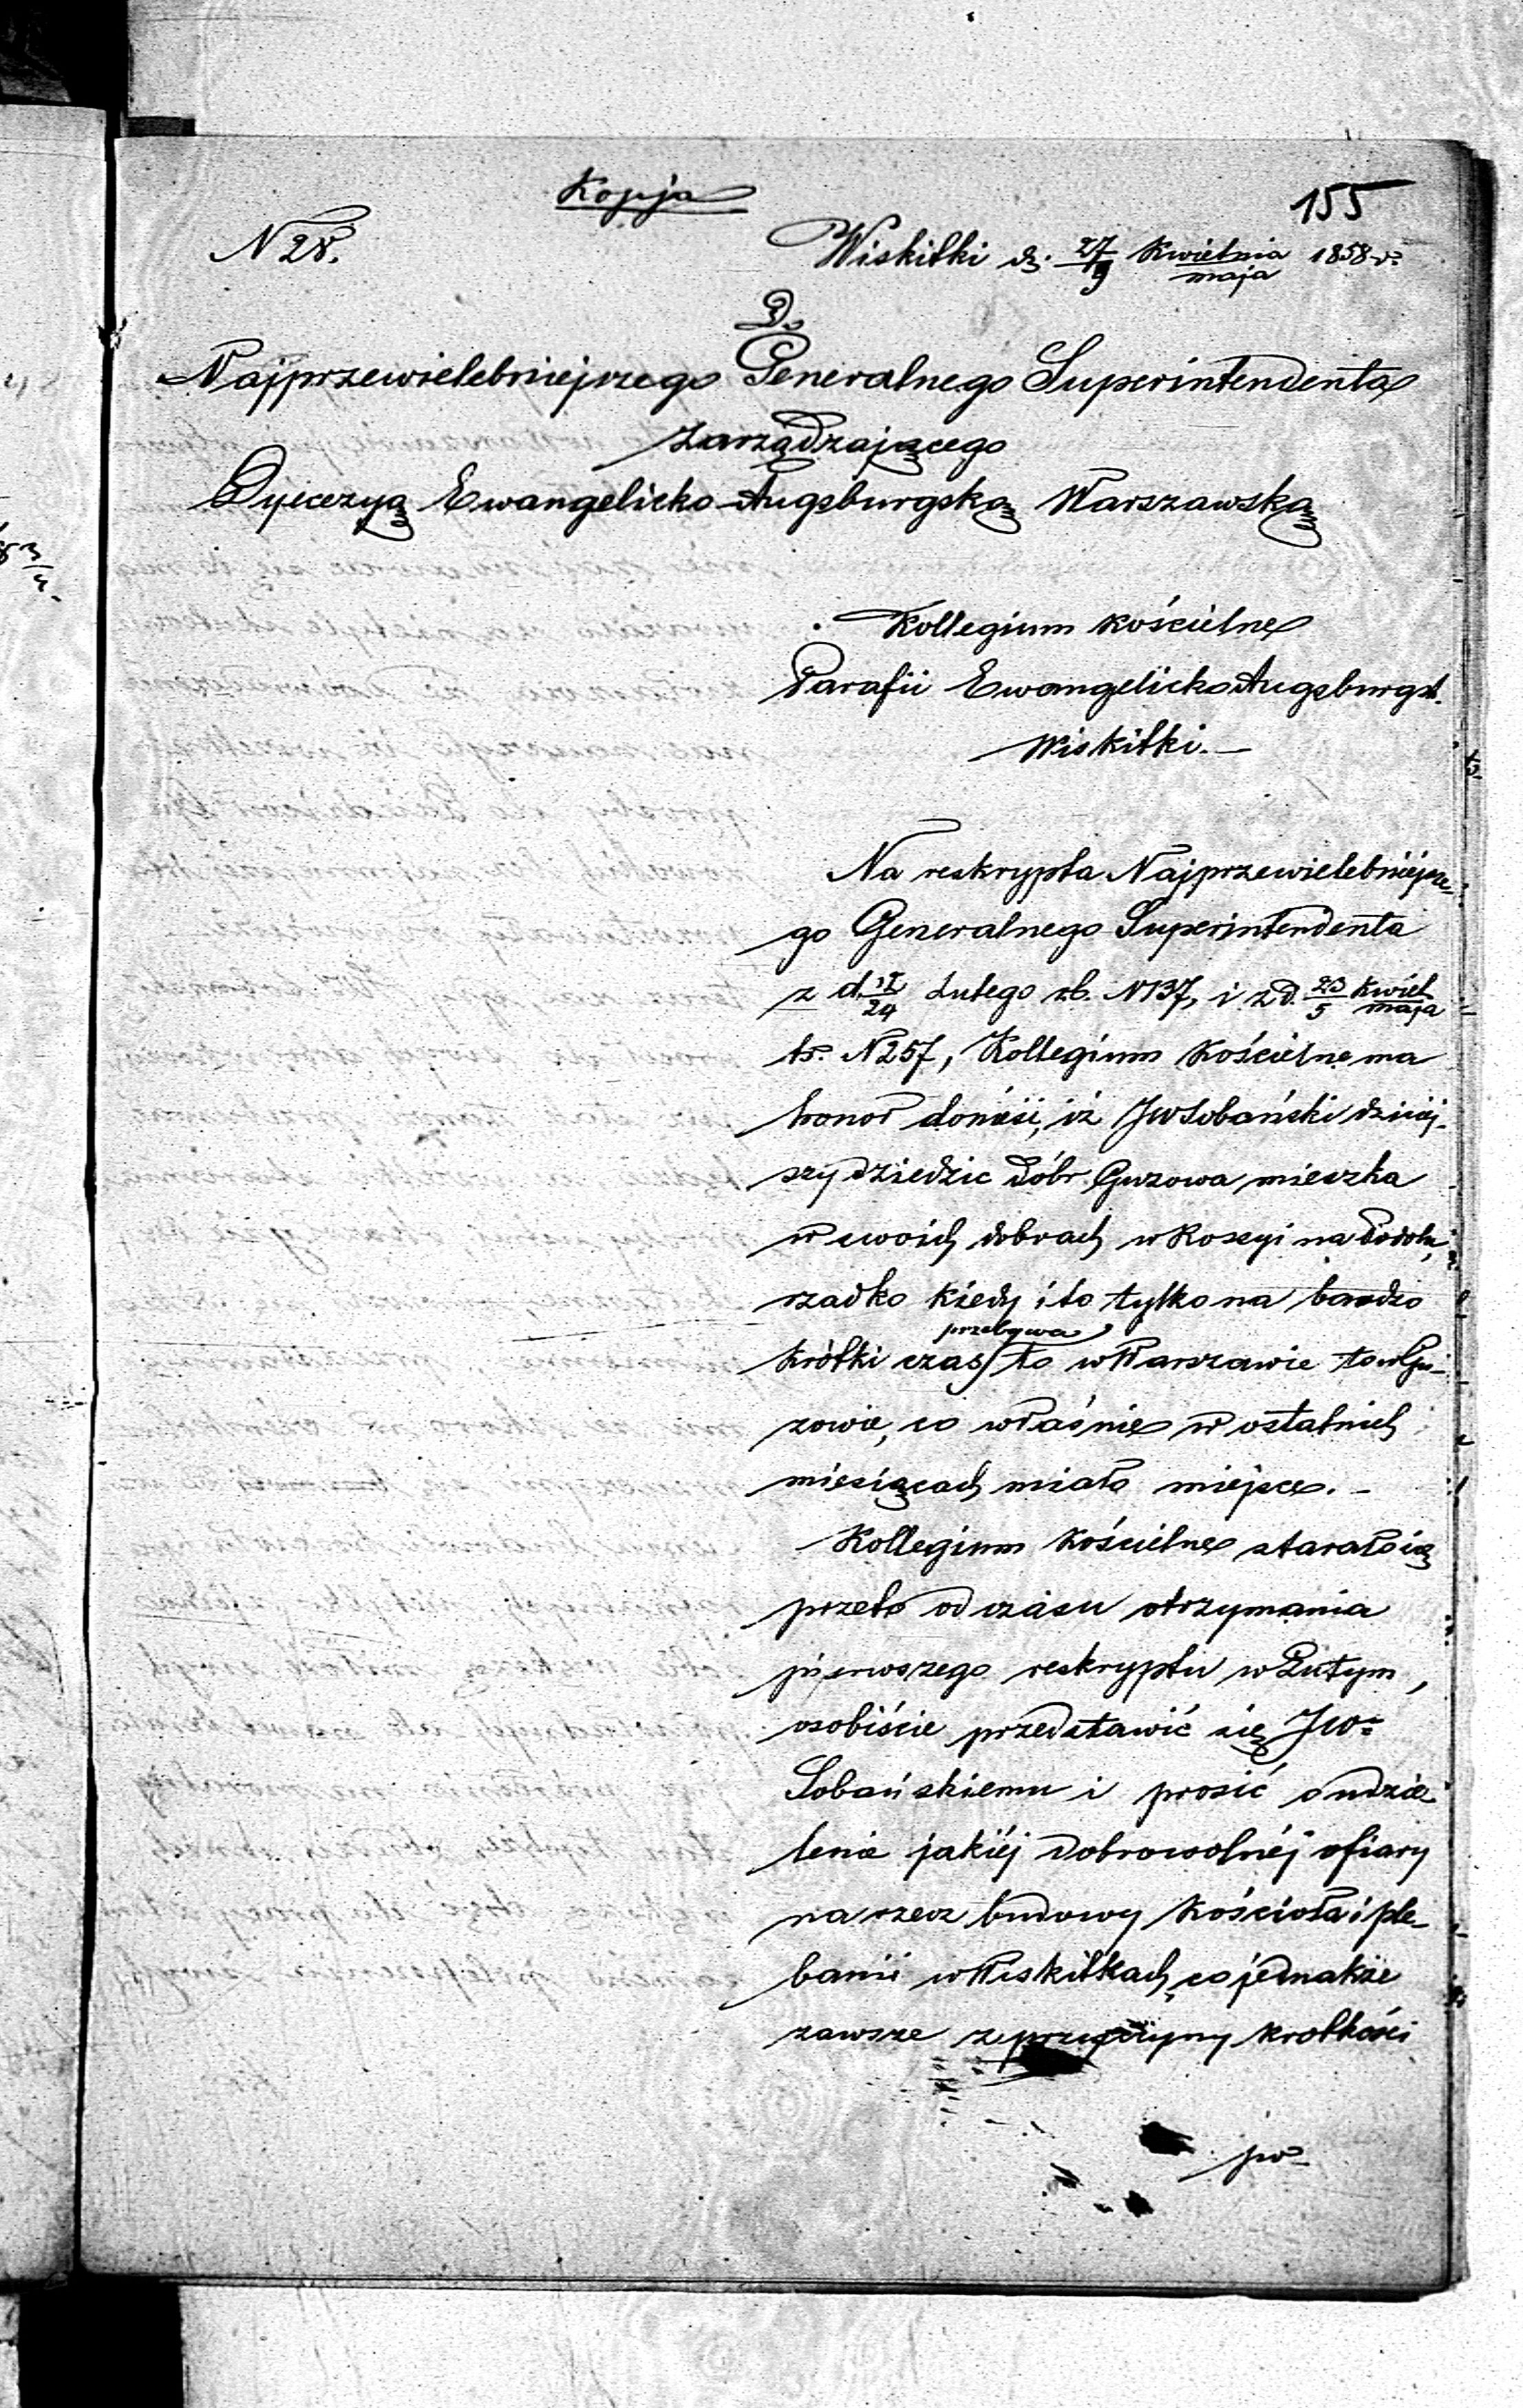 Kopja
155
N 28.
Wiskitki d. 27/9 Kwietnia/maja 1858 r.
Do
Najprzewielebniejszego Generalnego Superintendenta
Zarządzającego
Dyecezyą Ewangelicko-Augsburgską Warszawską
Kollegium kościelne
Parafii Ewangelicko Augsburgsk.
Wiskitki.
Na reskrypta Najprzewielebniejsze-
go Generalnego Superintendenta
z d. 12/24 Lutego rb. N 137, i z d. 23/5 Kwiet/maja
N 257, Kollegium Kościelne ma
honor donieść, iż JW Sobański dzisiej-
szy dziedzic dóbr Guzowa mieszka
w swoich dobrach w Rossyi na Podolu,
rzadko kiedy i to tylko na bardzo
krótki czas przebywa to w Warszawie to w Gu-
zowie, co właśnie w ostatnich
miesiącach miało miejsce. -
Kollegium Kościelne starało się
przeto od czasu otrzymania
pierwszego reskryptu w Lutym,
osobiście przedstawić się JW
Sobańskiemu i prosić o udzie-
lenie jakiéj dobrowolnéj ofiary
na rzecz budowy Kościoła i ple-
banii w Wiskitkach, co jednakże
zawsze z przyczyny krotkości
po-